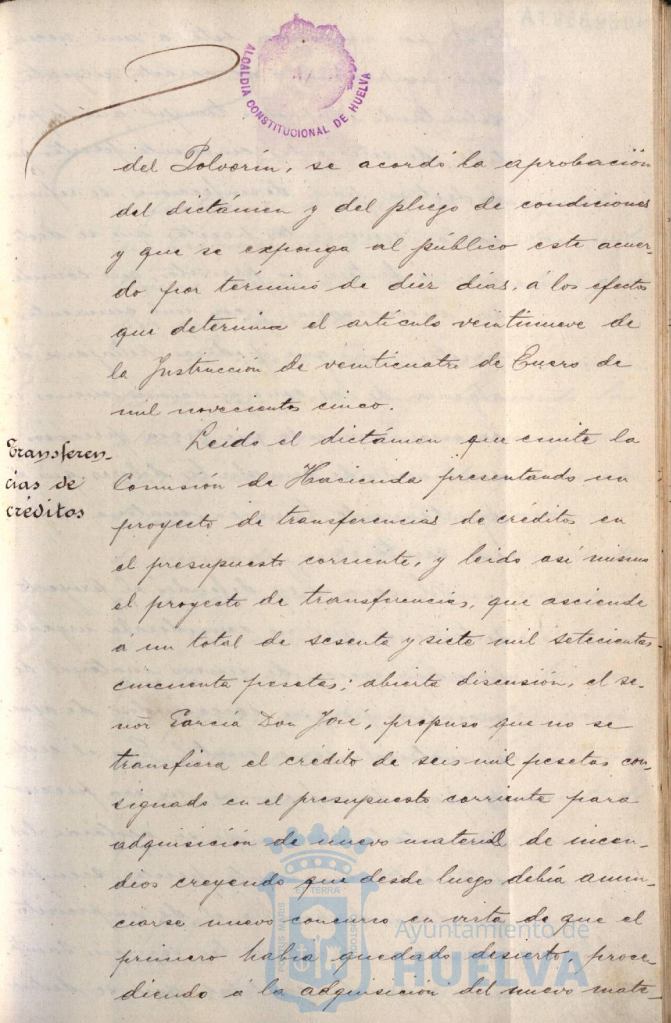 ALCALDIA CONSTITUCIONAL DE HUELVA
del Polvorín, se acordó la aprobación
del dictámen y del pliego de condiciones
y que se exponga al público este acuer-
do por término de diez días, á los efectos
que determina el artículo veintinueve de
la Instrucción de veinticuatro de Enero de
mil novecientos cinco.
Transferen-
cias de
créditos
Leido el dictámen que emite la
Comisión de Hacienda presentando un
proyecto de transferencias de créditos en
el presupuesto corriente, y leido así mismo
el proyecto de transferencias, que asciende
á un total de sesenta y siete mil setecientas
cincuenta pesetas; abierta discusión, el se-
ñor García Don José, propuso que no se
transfiera el crédito de seis mil pesetas con-
signado en el presupuesto corriente para
adquisición de nuevo material de incen-
dios creyendo que desde luego debía anun-
ciarse nuevo concurso en vista de que el
primero había quedado desierto, proce-
diendo á la adquisición del nuevo mate-
Ayuntamiento de
HUELVA